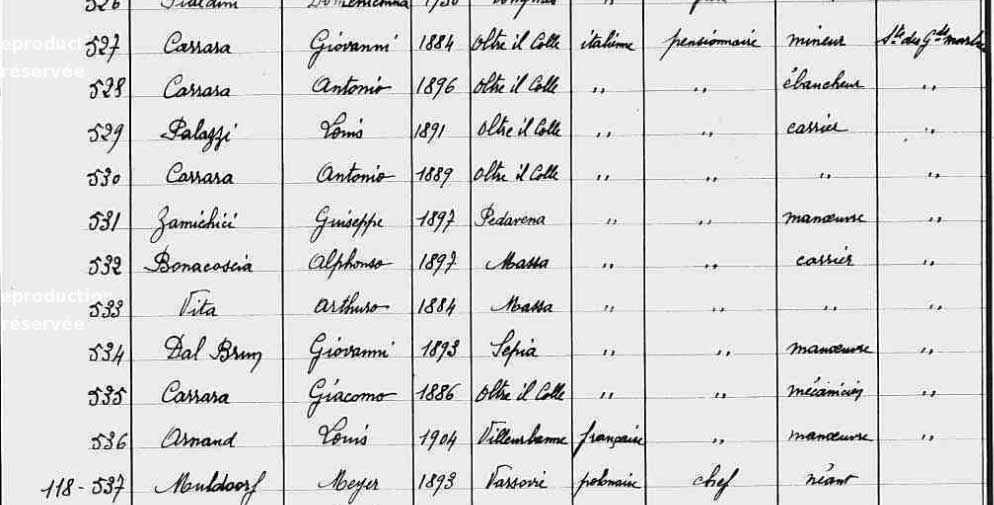 526 Domenicina 1930
527 Carrara Giovanni 1884 Oltre il Colle italienne pensionnaire mineur Sté des Gds marbres
528 Carrara Antonio 1896 Oltre il Colle " " ébaucheur "
529 Palazzi Louis 1891 Oltre il Colle " " carrier "
530 Carrara Antonio 1889 Oltre il Colle " " " "
531 Zamichici Guiseppe 1897 Pedavena " " manœuvre "
532 Bonacoscia Alphonso 1897 Massa " " carrier "
533 Vita Arthuro 1884 Massa " " " "
534 Dal Brun Giovanni 1893 Sepia " " manœuvre "
535 Carrara Giacomo 1886 Oltre il Colle " " mécanicien "
536 Arnaud Louis 1904 Villeurbanne française " manœuvre "
118 - 537 Muldoorf Meyer 1893 Varsovie polonaise chef néant
eproduct
réservée
eproduction
réservée